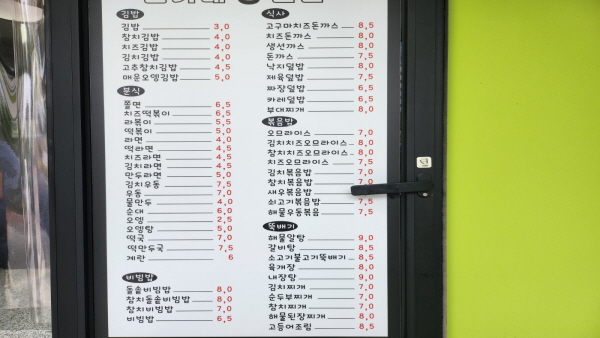 김밥
김밥 3,0
참치김밥 4,0
치즈김밥 4,0
김치김밥 4,0
고추참치김밥 4,5
매운오뎅김밥 5,0
분식
쫄면 6,5
치즈떡볶이 6,5
라볶이 5,5
떡볶이 5,0
라면 4,0
떡라면 4,5
치즈라면 4,5
김치라면 4,5
만두라면 5,0
김치우동 7,5
우동 7,0
물만두 4,0
순대 6,0
오뎅 2,5
오뎅탕 5,0
떡국 7,0
떡만두국 7,5
계란 6
비빔밥
돌솥비빔밥 8,0
참치돌솥비빔밥 8,0
참치비빔밥 7,0
비빔밥 6,5
식사
고구마치즈돈까스 8,5
치즈돈까스 8,0
생선까스 8,0
돈까스 7,5
낙지덮밥 8,0
제육덮밥 7,5
짜장덮밥 6,5
카레덮밥 6,5
부대찌개 8,0
볶음밥
오므라이스 7,0
김치치즈오므라이스 8,0
참치치즈오므라이스 8,0
치즈오므라이스 7,5
김치볶음밥 7,0
참치볶음밥 7,0
새우볶음밥
쇠고기볶음밥 7,5
해물우동볶음 7,5
뚝배기
해물알탕 9,0
갈비탕 8,5
소고기불고기뚝배기 8,5
육개장 8,0
내장탕 9,0
김치찌개 7,0
순두부찌개 7,0
참치찌개 7,0
해물된장찌개 8,0
고등어조림 8,5